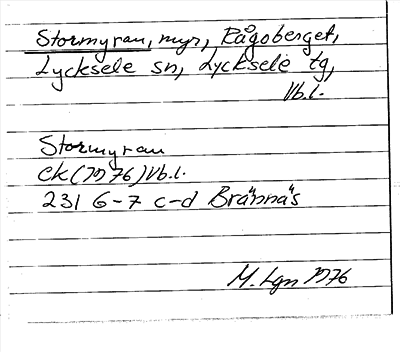 Stormyran, myr, Rågoberget,
Lycksele sn, Lycksele tg,
Vb.l.
Stormyran
Ek (1976) Vb.l.
231 6-7 c-d Brännäs
M. Lgn 1976